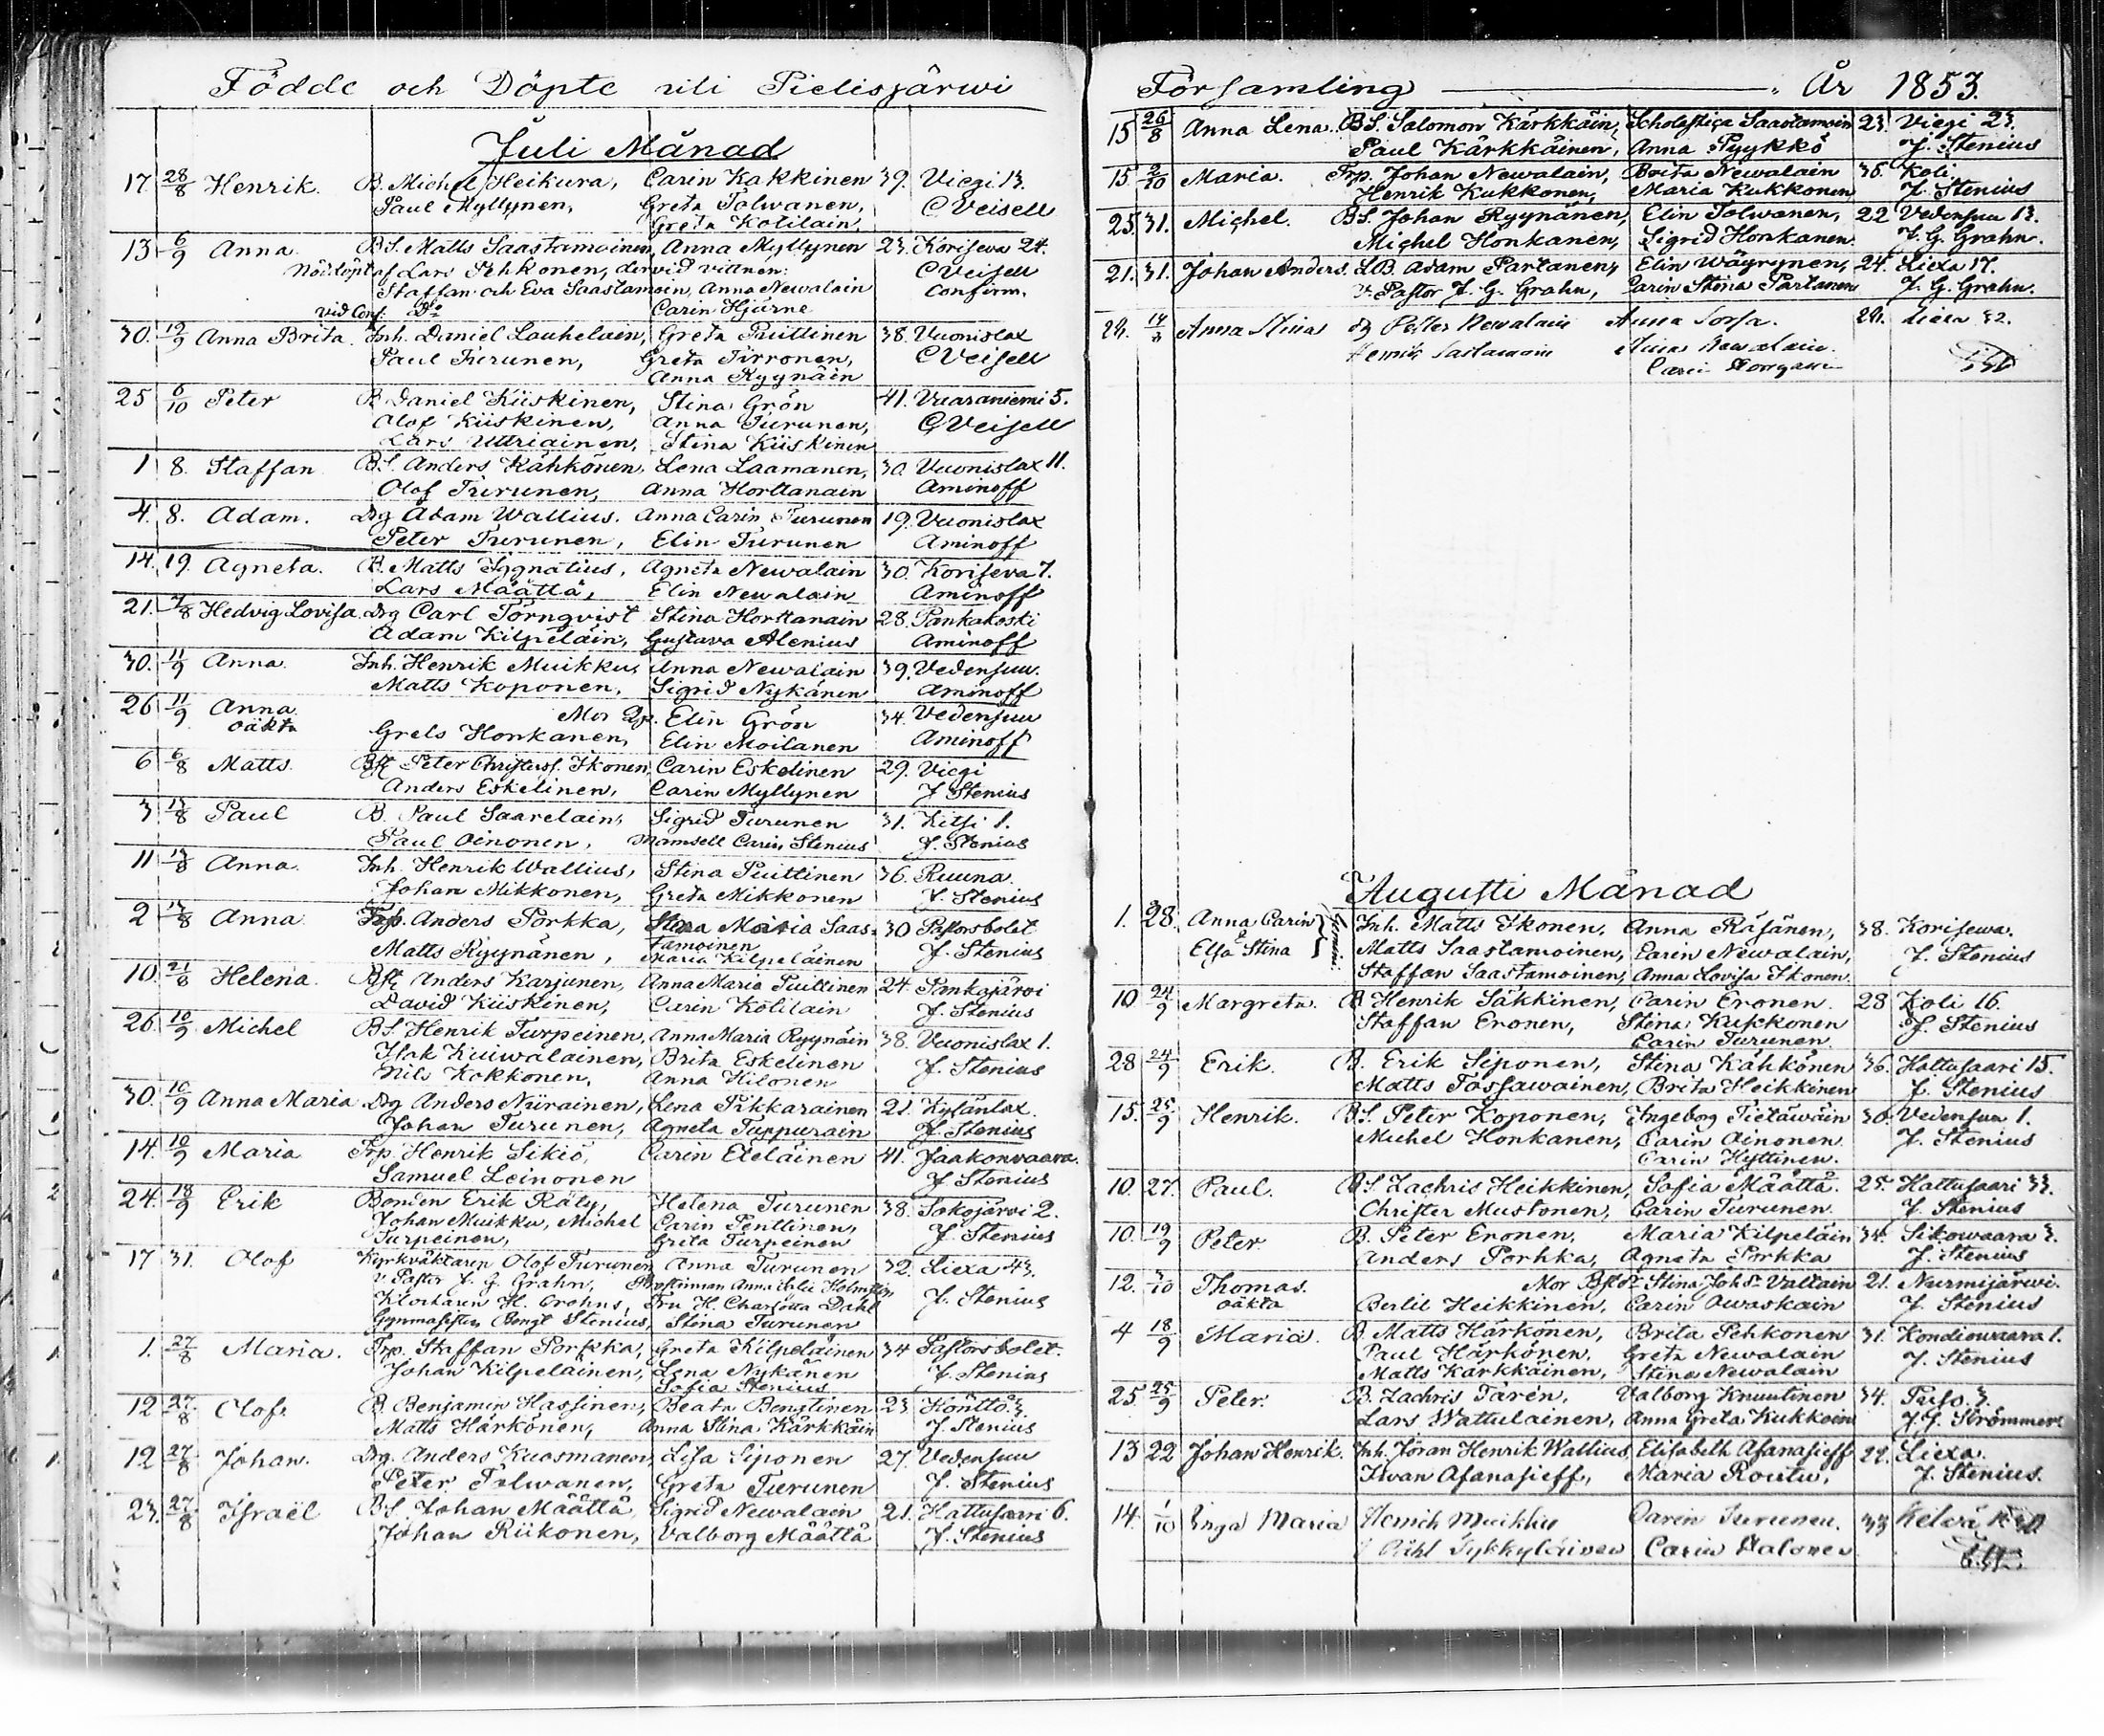 Födde och Döpte uti Pielisjärwi
Juli Månad
17. 28/8 Henrik. B. Michel Heikura, Carin Kakkinen 39. Viegi 13.
Paul Myllynen, Greta Tolwanen, C Veisell
Greta Kotilain
13 6/9 Anna. BS. Matts Saastamoinen, Anna Myllynen 23. Korisevа 24.
Nöddöpt af Lars Pehkonen, dervid vittnen: C Veisell
Staffan och Eva Saastamoin, Anna Newalain Confirm.
vid Conf. Carin Hjärne
30. 12/9 Anna Brita. Inh. Daniel Lauhelain, Greta Puittinen 38. Vuonislax
Paul Turunen, Greta Tirronen, C Veisell
Anna Ryynäin
25 6/10 Peter B Daniel Kiiskinen, Stina Grön 41. Vuaraniemi 5.
Olof Kiiskinen, Anna Turunen, C Veisell
Lars Uttriainen, Stina Kiiskinen
1 8. Staffan BS. Anders Kähkönen, Lena Laamanen, 30. Vuonislax 11.
Olof Turunen, Anna Horttanain Aminoff
4. 8. Adam. Drg Adam Wallius. Anna Carin Turunen 19. Vuonislax
Peter Turunen, Elin Turunen Aminoff
14. 19. Agneta. B. Matts Sygnatius, Agneta Newalain 30. Koriseva 7.
Lars Määttä, Elin Newalain Aminoff
21. 7/8 Hedvig Lovisa. Drg Carl Törnqvist Stina Horttanain 28. Pankakoski
Adam Kilpeläin, Gustava Alenius Aminoff
30. 11/9 Anna. Inh. Henrik Muikku, Anna Newalain 39. Vedensuu.
Matts Koponen, Sigrid Nykänen Aminoff
26 11/9 Anna Mor Elin Grön 34. Vedensuu
oäkta Grels Honkanen, Elin Moilanen Aminoff
6 6/8 Matts. Bfk Peter Christers. Ikonen, Carin Eskelinen 29. Viegi
Anders Eskelinen, Carin Myllynen J Stenius
3 13/8 Paul B. Paul Saarelain, Sigrid Turunen 31. Kitsi 1.
Paul Oinonen, Mamsell Carin Stenius J. Stenius
11 13/8 Anna. Inh. Henrik Wallius, Stina Puittinen 36. Ruuna.
Johan Mikkonen, Greta Mikkonen J. Stenius
2 13/8 Anna Trp. Anders Porkka, Stina Maria Saas- 30 Pastorsbolet
tamoinen
Matts Ryynänen, Maria Kilpeläinen J. Stenius
10. 21/8 Helena. Bfk Anders Karjunen, Anna Maria Puittinen 24. Pankajärvi
David Kiiskinen, Carin Kotilain J. Stenius
26. 10/9 Michel BS. Henrik Turpeinen, Anna Maria Ryynäin 38. Vuonislax 1.
Isak Kuiwalainen, Brita Eskelinen J. Stenius
Nils Kokkonen, Anna Hilonen
30. 10/9 Anna Maria Drg Anders Niirainen, Lena Pikkarainen 21. Kylänlax.
Johan Turunen, Agneta Tuppurain J. Stenius
14. 10/9 Maria Trp. Henrik Sikiö, Carin Eteläinen 41. Jaakonvaara.
Samuel Leinonen J. Stenius
24. 18/9 Erik Bonden Erik Räty, Helena Turunen 38. Sokojärvi 2.
Johan Muikku, Michel Carin Penttinen, J. Stenius
Turpeinen, Greta Turpeinen
17 31. Olof Kyrkväktaren Olof Turunen Anna Turunen 32. Liexa 43.
v. Pastor J. G. Grahn, Prostinnan Anna
Klockaren H. Crohns, Fru H. Charlotta Dahl J. Stenius
Gymnasisten Bengt Stenius, Stina Turunen
1. 27/8 Maria. Trp. Staffan Porkka, Greta Kilpeläinen 34 Pastorsbolet.
Johan Kilpeläinen, Lena Nykänen J. Stenius
Sofia Stenius
12 27/8 Olof B. Benjamin Hassinen, Beata Bengtinen 23 Könttö 3.
Matts Härkönen, Anna Stina Kärkkäin J. Stenius
12 27/8 Johan. Drg. Anders Kuosmanen, Lisa Siponen 27. Vedensuu
Peter Tolwanen, Greta Turunen J. Stenius
23. 27/8 Israël BS. Johan Määttä Sigrid Newalain 21. Hattusaari 6.
Johan Riikonen, Valborg Määttä J. Stenius
Församling År 1853.
15 26/8 Anna Lena. BS. Salomon Kärkkäin, Scholastica Saastamoin 23. Viegi 23.
Paul Kärkkäinen, Anna Pyykkö J. Stenius
15 2/10 Maria. Trp. Johan Newalain, Brita Newalain 36. Koli.
Henrik Kukkonen, Maria Kukkonen J. Stenius
25. 31. Michel. BS. Johan Ryynänen, Elin Tolwanen, 22 Vedensuu 13.
Michel Honkanen, Sigrid Honkanen. J. G. Grahn.
21. 31. Johan Anders. LB. Adam Partanen, Elin Wäyrynen, 24. Liexa 17.
v. Pastor J. G. Grahn, Carin Stina Partanen J. G. Grahn.
Anna Stina Dg Petter Newalain Anna Sorsa. Liexa 32.
Henrik Sastamoin Stina Newalain.
Carin
Augusti Månad
1. 28. Anna Carin Inh. Matts Ikonen, Anna Räsänen, 38. Korisewa.
& Matts Saastamoinen, Carin Newalain,
Elsa Stina Gemini Staffan Saastamoinen, Anna Lovisa Ikonen. J. Stenius
10 24/9 Margreta. B Henrik Säkkinen, Carin Eronen. 28 Koli 16.
Staffan Eronen, Stina Kukkonen J. Stenius
Carin Turunen.
28 24/9 Erik. B. Erik Siponen, Stina Kähkönen 36. Hattusaari 15.
Matts Tossawainen, Brita Heikkinen J. Stenius
15. 25/9 Henrik. BS. Peter Koponen, Ingeborg Pietäwäin 30. Vedensuu 1.
Michel Honkanen, Carin Oinonen. J. Stenius
Carin Hyttinen.
10. 27. Paul. BS Zachris Heikkinen, Sofia Määttä. 25. Hattusaari 33.
Christer Mustonen, Carin Turunen. J. Stenius
10. 19/9 Peter. B. Peter Eronen, Maria Kilpeläin 34. Sikowaara 3.
Anders Porkka, Agneta Porkka J. Stenius
12. 3/10 Thomas. Mor Stina Joh.dr Vallain 21. Nurmijärwi.
oäkta Bertil Heikkinen, Carin Owaskain J. Stenius
4 18/9 Maria. B. Matts Härkönen, Brita Pehkonen 31. Kondiowaara 1.
Paul Härkönen. Greta Newalain J. Stenius
Matts Kärkkäinen, Stina Newalain
25. 25/9 Peter. B. Zachris Tarén, Valborg Knuutinen 34. Puso 3.
Lars Wattulainen, Anna Greta Kukkoin J. J. Strömmer
13 22 Johan Henrik. Inh. Jöran Henrik Wallius, Elisabeth Afanasieff 22. Liexa.
Iwan Afanasieff, Maria Routu, J. Stenius.
14. 1/10 Inga Maria Henrik Muikku Carin Turunen. 33 Kelvä
Pähl Tykkyläinen Carin Halonen